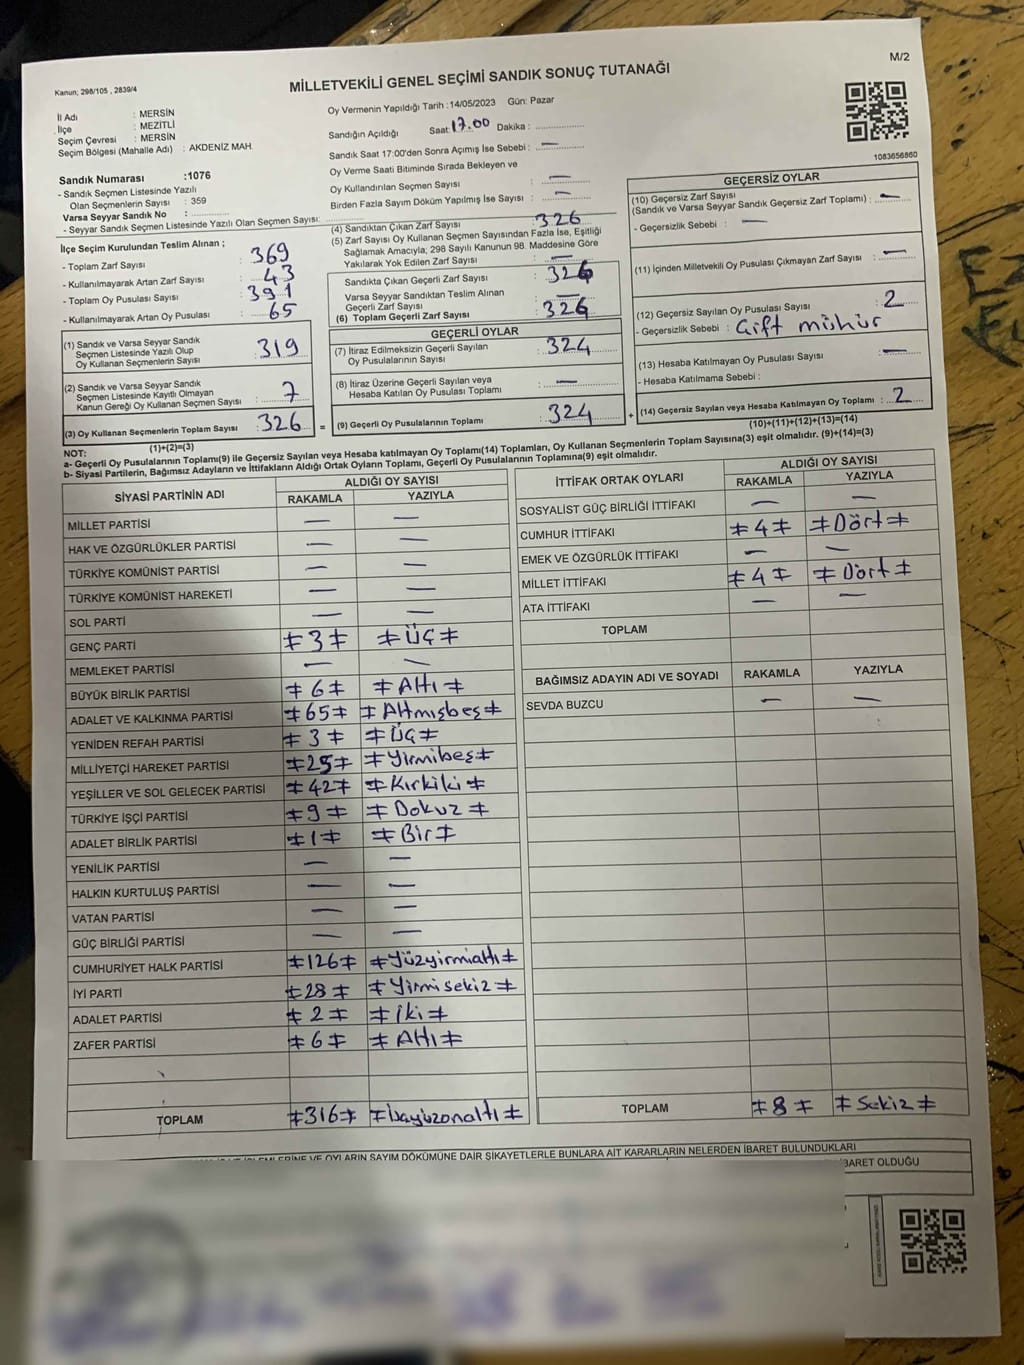 M/2
Kanun; 298/105 , 2839/4
MİLLETVEKİLİ GENEL SEÇİMİ SANDIK SONUÇ TUTANAĞI
İl Adı : MERSİN
İlçe : MEZİTLİ
Seçim Çevresi : MERSİN
Seçim Bölgesi (Mahalle Adı) : AKDENİZ MAH.
Sandık Numarası :1076
- Sandık Seçmen Listesinde Yazılı
Olan Seçmenlerin Sayısı : 359
Varsa Seyyar Sandık No :
- Seyyar Sandık Seçmen Listesinde Yazılı Olan Seçmen Sayısı:
Oy Vermenin Yapıldığı Tarih :14/05/2023 Gün: Pazar
Sandığın Açıldığı Saat: 17.00 Dakika:
Sandık Saat 17:00'den Sonra Açımış İse Sebebi : —
Oy Verme Saati Bitiminde Sırada Bekleyen ve
Oy Kullandırılan Seçmen Sayısı : —
Birden Fazla Sayım Döküm Yapılmış İse Sayısı : —
1083656860
İlçe Seçim Kurulundan Teslim Alınan ;
- Toplam Zarf Sayısı : 369
- Kullanılmayarak Artan Zarf Sayısı : 43
- Toplam Oy Pusulası Sayısı : 391
- Kullanılmayarak Artan Oy Pusulası : 65
(1) Sandık ve Varsa Seyyar Sandık
Seçmen Listesinde Yazılı Olup
Oy Kullanan Seçmenlerin Sayısı : 319
(2) Sandık ve Varsa Seyyar Sandık
Seçmen Listesinde Kayıtlı Olmayan
Kanun Gereği Oy Kullanan Seçmen Sayısı : 7
(3) Oy Kullanan Seçmenlerin Toplam Sayısı : 326
(1)+(2)=(3)
(4) Sandıktan Çıkan Zarf Sayısı : 326
(5) Zarf Sayısı Oy Kullanan Seçmen Sayısından Fazla İse, Eşitliği
Sağlamak Amacıyla; 298 Sayılı Kanunun 98. Maddesine Göre
Yakılarak Yok Edilen Zarf Sayısı : —
Sandıkta Çıkan Geçerli Zarf Sayısı : 326
Varsa Seyyar Sandıktan Teslim Alınan
Geçerli Zarf Sayısı : —
(6) Toplam Geçerli Zarf Sayısı : 326
GEÇERLİ OYLAR
(7) İtiraz Edilmeksizin Geçerli Sayılan
Oy Pusulalarının Sayısı : 324
(8) İtiraz Üzerine Geçerli Sayılan veya
Hesaba Katılan Oy Pusulası Toplamı : —
= (9) Geçerli Oy Pusulalarının Toplamı : 324 +
GEÇERSİZ OYLAR
(10) Geçersiz Zarf Sayısı
(Sandık ve Varsa Seyyar Sandık Geçersiz Zarf Toplamı) : —
- Geçersizlik Sebebi : —
(11) İçinden Milletvekili Oy Pusulası Çıkmayan Zarf Sayısı : —
(12) Geçersiz Sayılan Oy Pusulası Sayısı : 2
- Geçersizlik Sebebi : Çift mühür
(13) Hesaba Katılmayan Oy Pusulası Sayısı : —
- Hesaba Katılmama Sebebi :
(14) Geçersiz Sayılan veya Hesaba Katılmayan Oy Toplamı : 2
(10)+(11)+(12)+(13)=(14)
NOT:
a- Geçerli Oy Pusulalarının Toplamı(9) ile Geçersiz Sayılan veya Hesaba katılmayan Oy Toplamı(14) Toplamları, Oy Kullanan Seçmenlerin Toplam Sayısına(3) eşit olmalıdır. (9)+(14)=(3)
b- Siyasi Partilerin, Bağımsız Adayların ve İttifakların Aldığı Ortak Oyların Toplamı, Geçerli Oy Pusulalarının Toplamına(9) eşit olmalıdır.
SİYASİ PARTİNİN ADI ALDIĞI OY SAYISI
RAKAMLA YAZIYLA
MİLLET PARTİSİ — —
HAK VE ÖZGÜRLÜKLER PARTİSİ — —
TÜRKİYE KOMÜNİST PARTİSİ — —
TÜRKİYE KOMÜNİST HAREKETİ — —
SOL PARTİ — —
GENÇ PARTİ ≠3≠ ≠ÜÇ≠
MEMLEKET PARTİSİ — —
BÜYÜK BİRLİK PARTİSİ ≠6≠ ≠Altı≠
ADALET VE KALKINMA PARTİSİ ≠65≠ ≠Altmışbeş≠
YENİDEN REFAH PARTİSİ ≠3≠ ≠Üç≠
MİLLİYETÇİ HAREKET PARTİSİ ≠25≠ ≠Yirmibeş≠
YEŞİLLER VE SOL GELECEK PARTİSİ ≠42≠ ≠Kırkiki≠
TÜRKİYE İŞÇİ PARTİSİ ≠9≠ ≠Dokuz≠
ADALET BİRLİK PARTİSİ ≠1≠ ≠Bir≠
YENİLİK PARTİSİ — —
HALKIN KURTULUŞ PARTİSİ — —
VATAN PARTİSİ — —
GÜÇ BİRLİĞİ PARTİSİ — —
CUMHURİYET HALK PARTİSİ ≠126≠ ≠Yüzyirmialtı≠
İYİ PARTİ ≠28≠ ≠Yirmisekiz≠
ADALET PARTİSİ ≠2≠ ≠İki≠
ZAFER PARTİSİ ≠6≠ ≠Altı≠
TOPLAM ≠316≠ ≠Üçyüzonaltı≠
İTTİFAK ORTAK OYLARI ALDIĞI OY SAYISI
RAKAMLA YAZIYLA
SOSYALİST GÜÇ BİRLİĞİ İTTİFAKI — —
CUMHUR İTTİFAKI ≠4≠ ≠Dört≠
EMEK VE ÖZGÜRLÜK İTTİFAKI — —
MİLLET İTTİFAKI ≠4≠ ≠Dört≠
ATA İTTİFAKI — —
TOPLAM
BAĞIMSIZ ADAYIN ADI VE SOYADI RAKAMLA YAZIYLA
SEVDA BUZCU — —
TOPLAM ≠8≠ ≠Sekiz≠
VE OYLARIN SAYIM DÖKÜMÜNE DAİR ŞİKAYETLERLE BUNLARA AİT KARARLARIN NELERDEN İBARET BULUNDUKLARI
İBARET OLDUĞU